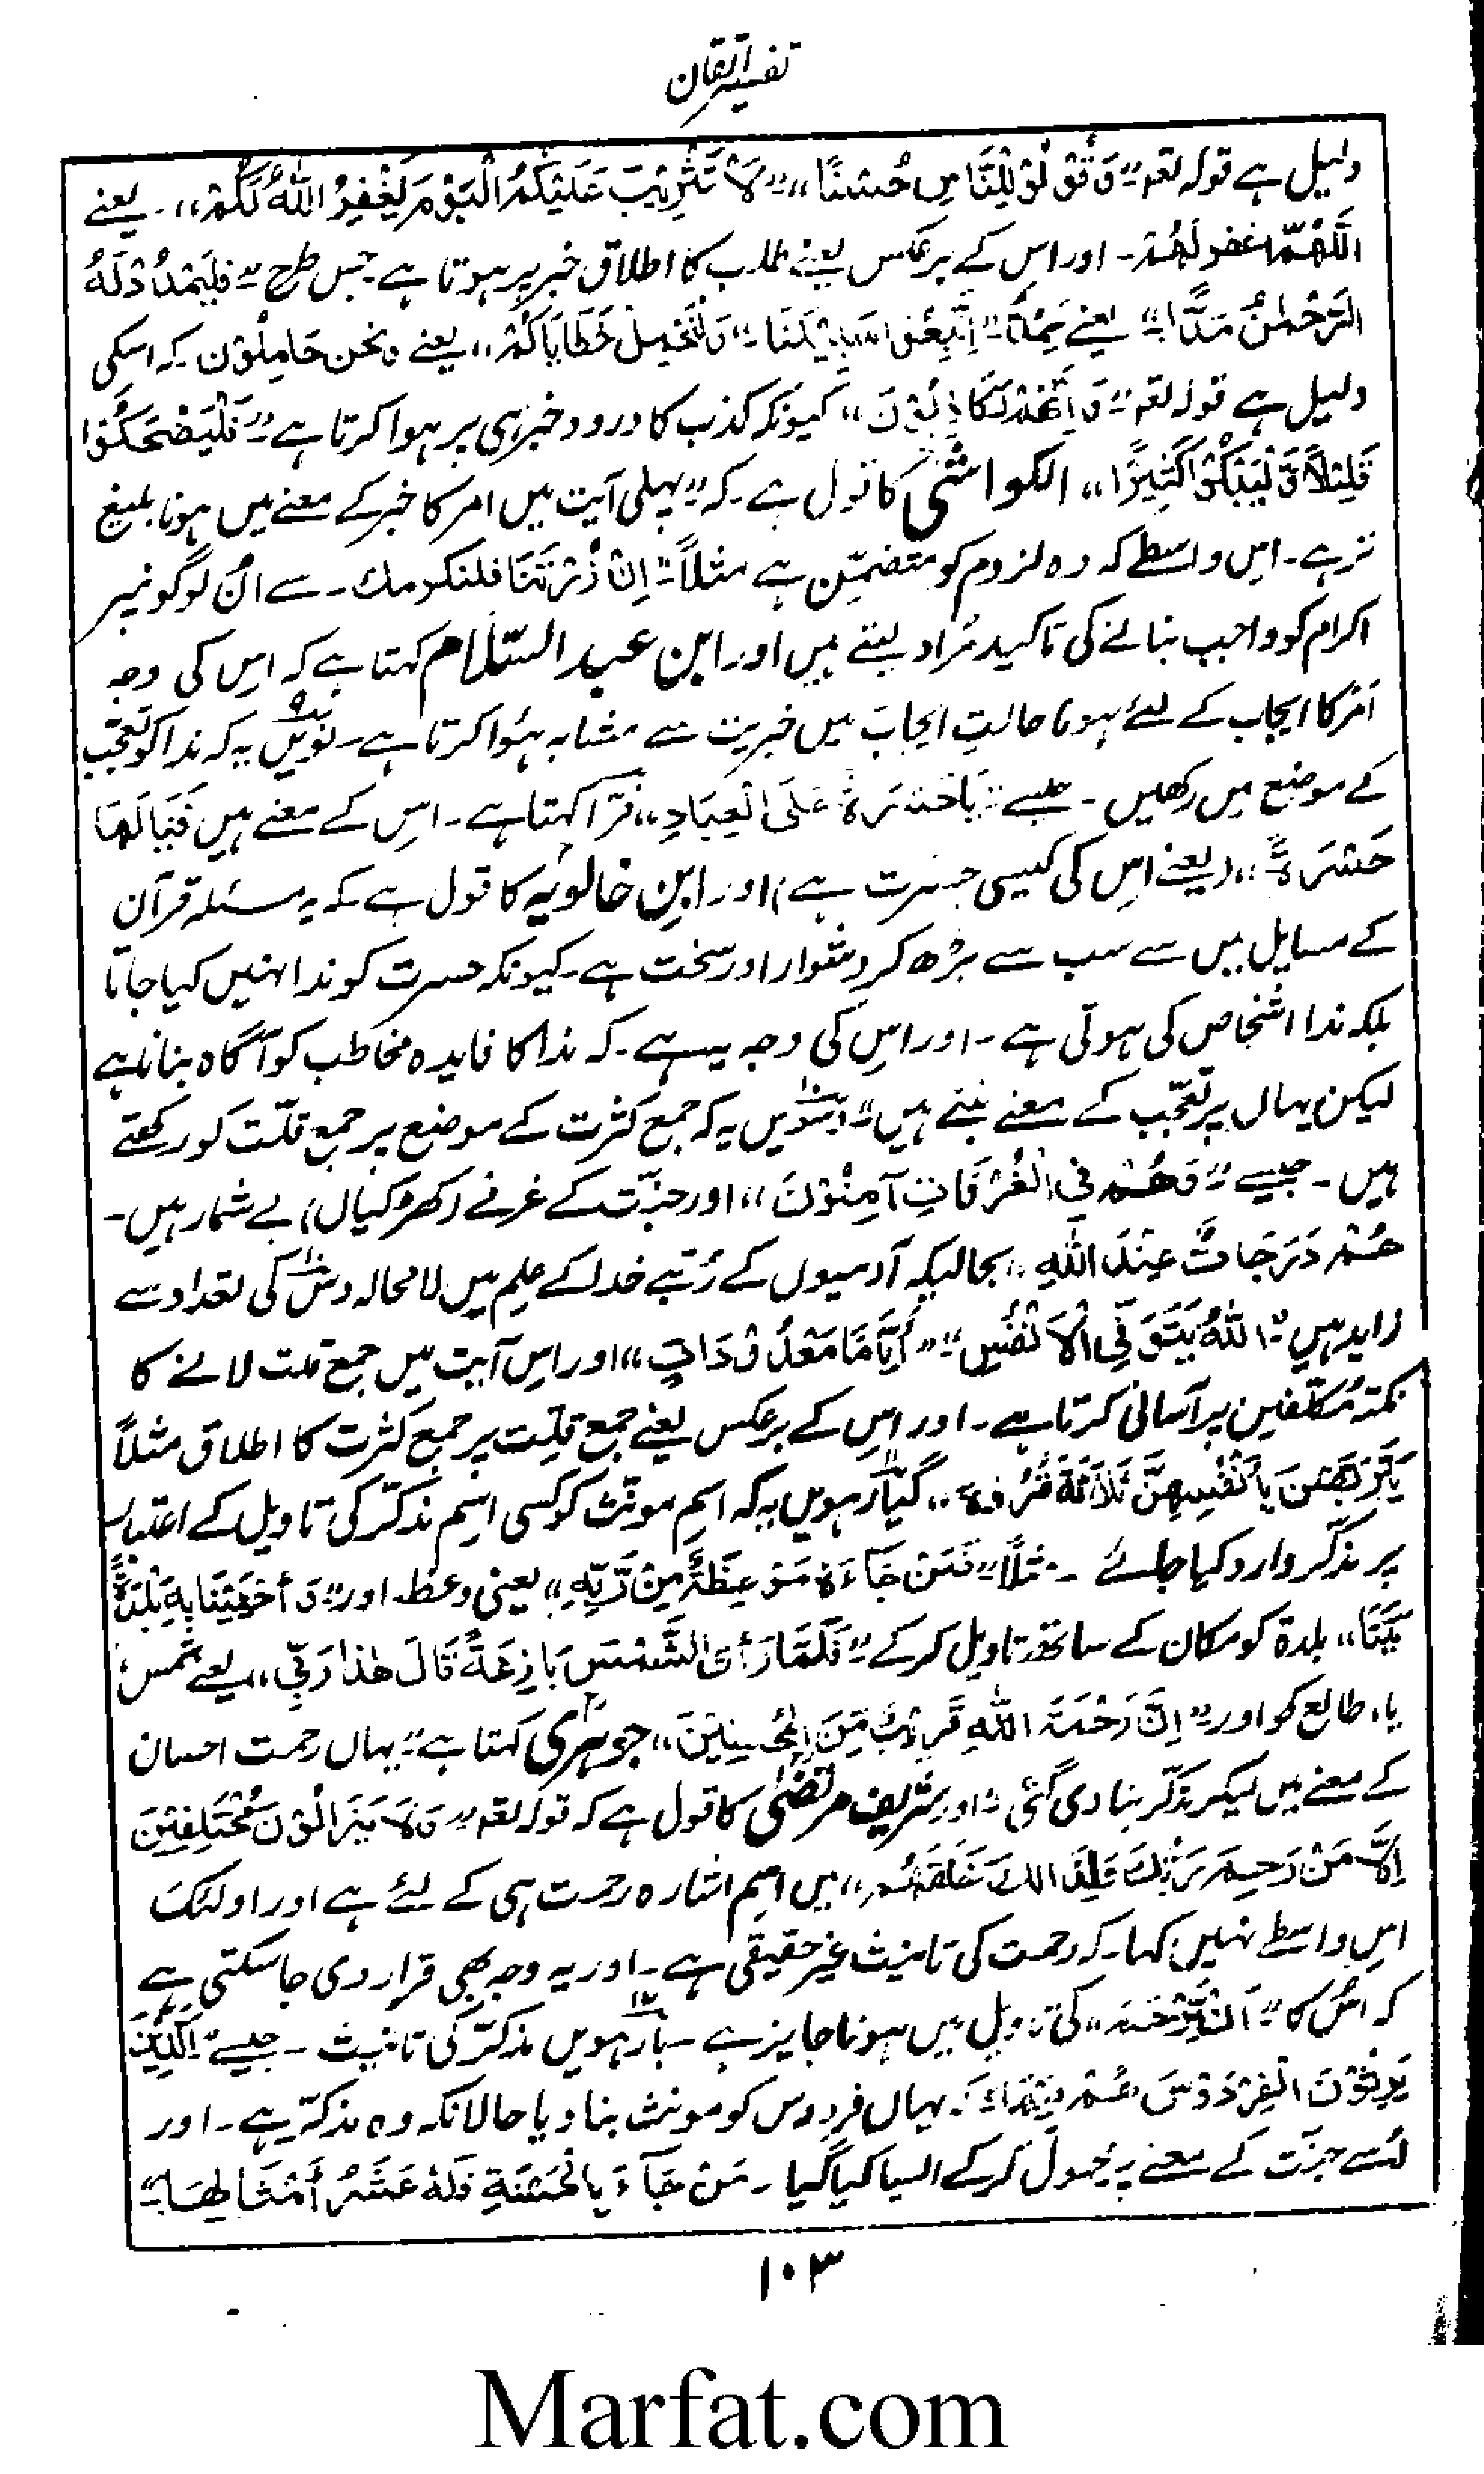 تفسیر اتقان
دلیل ہے قولہ لقہ "وَقُوْلُوْا لِلنَّاسِ حُسْنًا" "لَا تَثْرِیْبَ عَلَیْکُمُ الْیَوْمَ یَغْفِرُ اللّٰہُ لَکُمْ"۔ یعنے
اَللّٰھُمَّ اغفر لَھُمْ۔ اور اس کے برعکس یعنے طلب کا اطلاق خبر پر ہوتا ہے۔ جس طرح "فَلْیَمْدُدْ لَہُ
الرَّحْمٰنُ مَدًّا" یعنے یَمُدُّ "اِتَّبِعُوْا سَبِیْلَنَا" "وَلْنَحْمِلْ خَطَایَاکُمْ" یعنے ونحن حَامِلُوْن۔ کہ اسکی
دلیل ہے قولہ لقہ "وَاِنَّھُمْ لَکَاذِبُوْنَ" کیونکہ کذب کا درود خبر ہی پر ہوا کرتا ہے "فَلْیَضْحَکُوْا
قَلِیْلًا وَّلْیَبْکُوْا کَثِیْرًا"، الکواشی کا قول ہے۔ کہ "پہلی آیت میں امر کا خبر کے معنے میں ہونا بلیغ
تر ہے۔ اس واسطے کہ وہ لزوم کو متضمّن ہے مثلاً "اِنْ زُرْتَنَا فلنکرمك۔ سے اُن لوگونپر
اکرام کو واجب بنانے کی تاکید مُراد لیتے ہیں اور ابن عبد السّلام کہتا ہے کہ اس کی وجہ
اَمْر کا ایجاب کے لئے ہونا حالتِ ایجاب میں خبریت سے مشابہ ہُوا کرتا ہے۔ نویں یہ کہ ندا کو تعجّب
کے موضع میں رکھیں۔ جیسے "یَا حَسْرَۃً عَلَی الْعِبَادِ" فرّا کہتا ہے۔ اس کے معنے ہیں فَیَا لَھَا
حَسْرَۃً" (یعنے اس کی کیسی حسرت ہے) اور ابن خالویہ کا قول ہے کہ یہ مسئلہ قرآن
کے مسایل میں سے سب سے بڑھ کر دشوار اور سخت ہے۔ کیونکہ حسرت کو ندا نہیں کیا جاتا
بلکہ ندا اشخاص کی ہوتی ہے۔ اور اس کی وجہ یہ ہے۔ کہ ندا کا فایدہ مخاطب کو آگاہ بنانا ہے
لیکن یہاں پر تعجّب کے معنے بنتے ہیں" دسویں یہ کہ جمع کثرت کے موضع پر جمع قلّت کو رکھتے
ہیں۔ جیسے "وَھُمْ فِی الْغُرُفَاتِ آمِنُوْنَ" اور جنّت کے غرفے (کھڑکیاں) بے شمار ہیں۔
ھُمْ دَرَجَاتٌ عِنْدَ اللّٰہِ" بحالیکہ آدمیوں کے رُتبے خدا کے علم میں لامحالہ دس کی تعداد سے
زاید ہیں "اَللّٰہُ یَتَوَفَّی الْاَنْفُسَ" "اَیَّامًا مَعْدُوْدَاتٍ" اور اس آیت میں جمع قلت لانے کا
نکتہ مُکلّفین پر آسانی کرتا ہے۔ اور اس کے برعکس یعنے جمع قلّت پر جمع کثرت کا اطلاق مثلاً
یَتَرَبَّصْنَ بِاَنْفُسِھِنَّ ثَلَاثَۃَ قُرُوْءٍ" گیارہویں یہ کہ اسم مونث کو کسی اسم مذکّر کی تاویل کے اعتبار
پر مذکّر وارد کیا جائے۔ مثلاً "فَمَنْ جَآءَہٗ مَوْعِظَۃٌ مِنْ رَّبِّہٖ" یعنی وعظ اور "وَأَحْیَیْنَا بِہٖ بَلْدَۃً
مَّیْتًا" بلدة کو مکان کے ساتھ تاویل کرکے "فَلَمَّا رَأَی الشَّمْسَ بَازِغَۃً قَالَ ھٰذَا رَبِّی" یعنے شمس
یا طالع کو اور "اِنَّ رَحْمَۃَ اللّٰہِ قَرِیْبٌ مِّنَ الْمُحْسِنِیْنَ" جوہری کہتا ہے "یہاں رحمت احسان
کے معنے میں لیکر مذکّر بنا دی گئی" اور شریف مرتضیٰ کا قول ہے کہ قولہ لقہ "وَلَا یَزَالُوْنَ مُخْتَلِفِیْنَ
اِلَّا مَنْ رَحِمَ رَبُّكَ وَلِذَالِكَ خَلَقَھُمْ" میں اسم اشارہ رحمت ہی کے لئے ہے اور اولئك
اس واسطے نہیں کہا۔ کہ رحمت کی تانیث غیر حقیقی ہے۔ اور یہ وجہ بھی قرار دی جا سکتی ہے
کہ اس کا "اَنْ یَّرْحَمَ" کی تاویل میں ہونا جایز ہے۔ بارہویں مذکّر کی تانیث۔ جیسے "اَلَّذِیْنَ
یَرِثُوْنَ الْفِرْدَوْسَ ھُمْ فِیْھَا" یہاں فردوس کو مونث بنا دیا حالانکہ وہ مذکّر ہے۔ اور
اُسے جنّت کے معنے پر محمول کرکے ایسا کیا گیا۔ مَنْ جَآءَ بِالْحَسَنَۃِ فَلَہٗ عَشْرُ أَمْثَالِھَا"
۱۰۳
Marfat.com